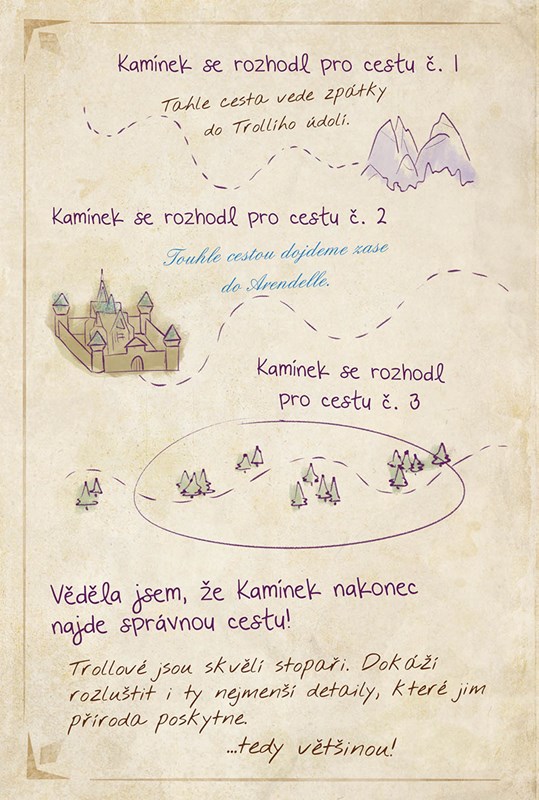 Kamínek se rozhodl pro cestu č. 1
Tahle cesta vede zpátky
do Trollího údolí.
Kamínek se rozhodl pro cestu č. 2
Touhle cestou dojdeme zase
do Arendelle.
Kamínek se rozhodl
pro cestu č. 3
Věděla jsem, že Kamínek nakonec
najde správnou cestu!
Trollové jsou skvělí stopaři. Dokáží
rozluštit i ty nejmenší detaily, které jim
příroda poskytne.
...tedy většinou!